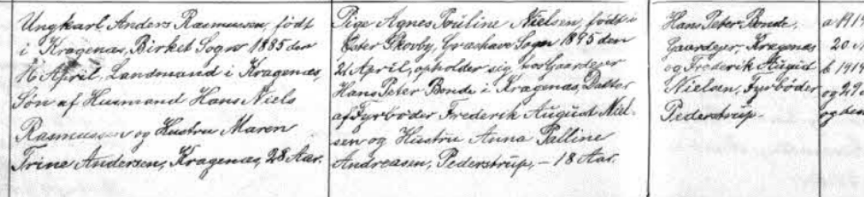 Ungkarl Anders Rasmussen, født
i Kragenæs, Birket Sogn 1885 den
April, Landmand i Kragenæs,
Søn af Husmand Hans Niels
Rasmussen og Hustru Maren
Trine Andersen, Kragenæs, 28 Aar.
Pige Agnes Pouline Nielsen, født i
Øster Skovby, Græshave Sogn 1895 den
21 April, opholder sig hos Gaardejer
Hans Peter Bonde i Kragenæs, Datter
af Fyrbøder Frederik August Niel-
sen og Hustru Anna Palline
Andreasen, Pederstrup, - 18 Aar.
Hans Peter Bonde,
Gaardejer, Kragenæs
og Frederik August
Nielsen, Fyrbøder
Pederstrup.
a 191
20
b 1914
og 29
og den